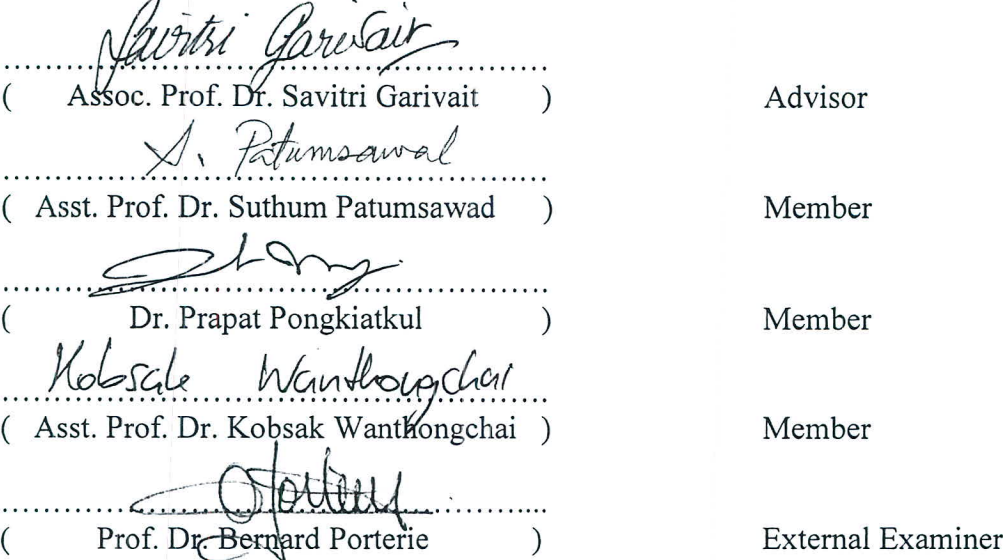 Savitri Garivait
( Assoc. Prof. Dr. Savitri Garivait ) Advisor
S. Patumsawad
( Asst. Prof. Dr. Suthum Patumsawad ) Member
( Dr. Prapat Pongkiatkul ) Member
Kobsak Wanthongchai
( Asst. Prof. Dr. Kobsak Wanthongchai ) Member
( Prof. Dr. Bernard Porterie ) External Examiner